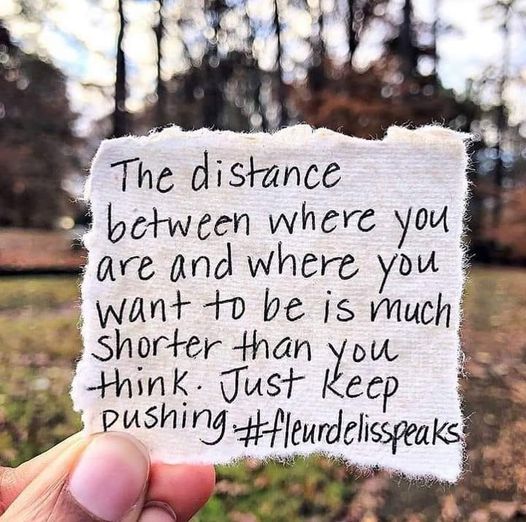 The distance
between where you
are and where you
want to be is much
shorter than you
think. Just keep
pushing. #fleurdelisspeaks